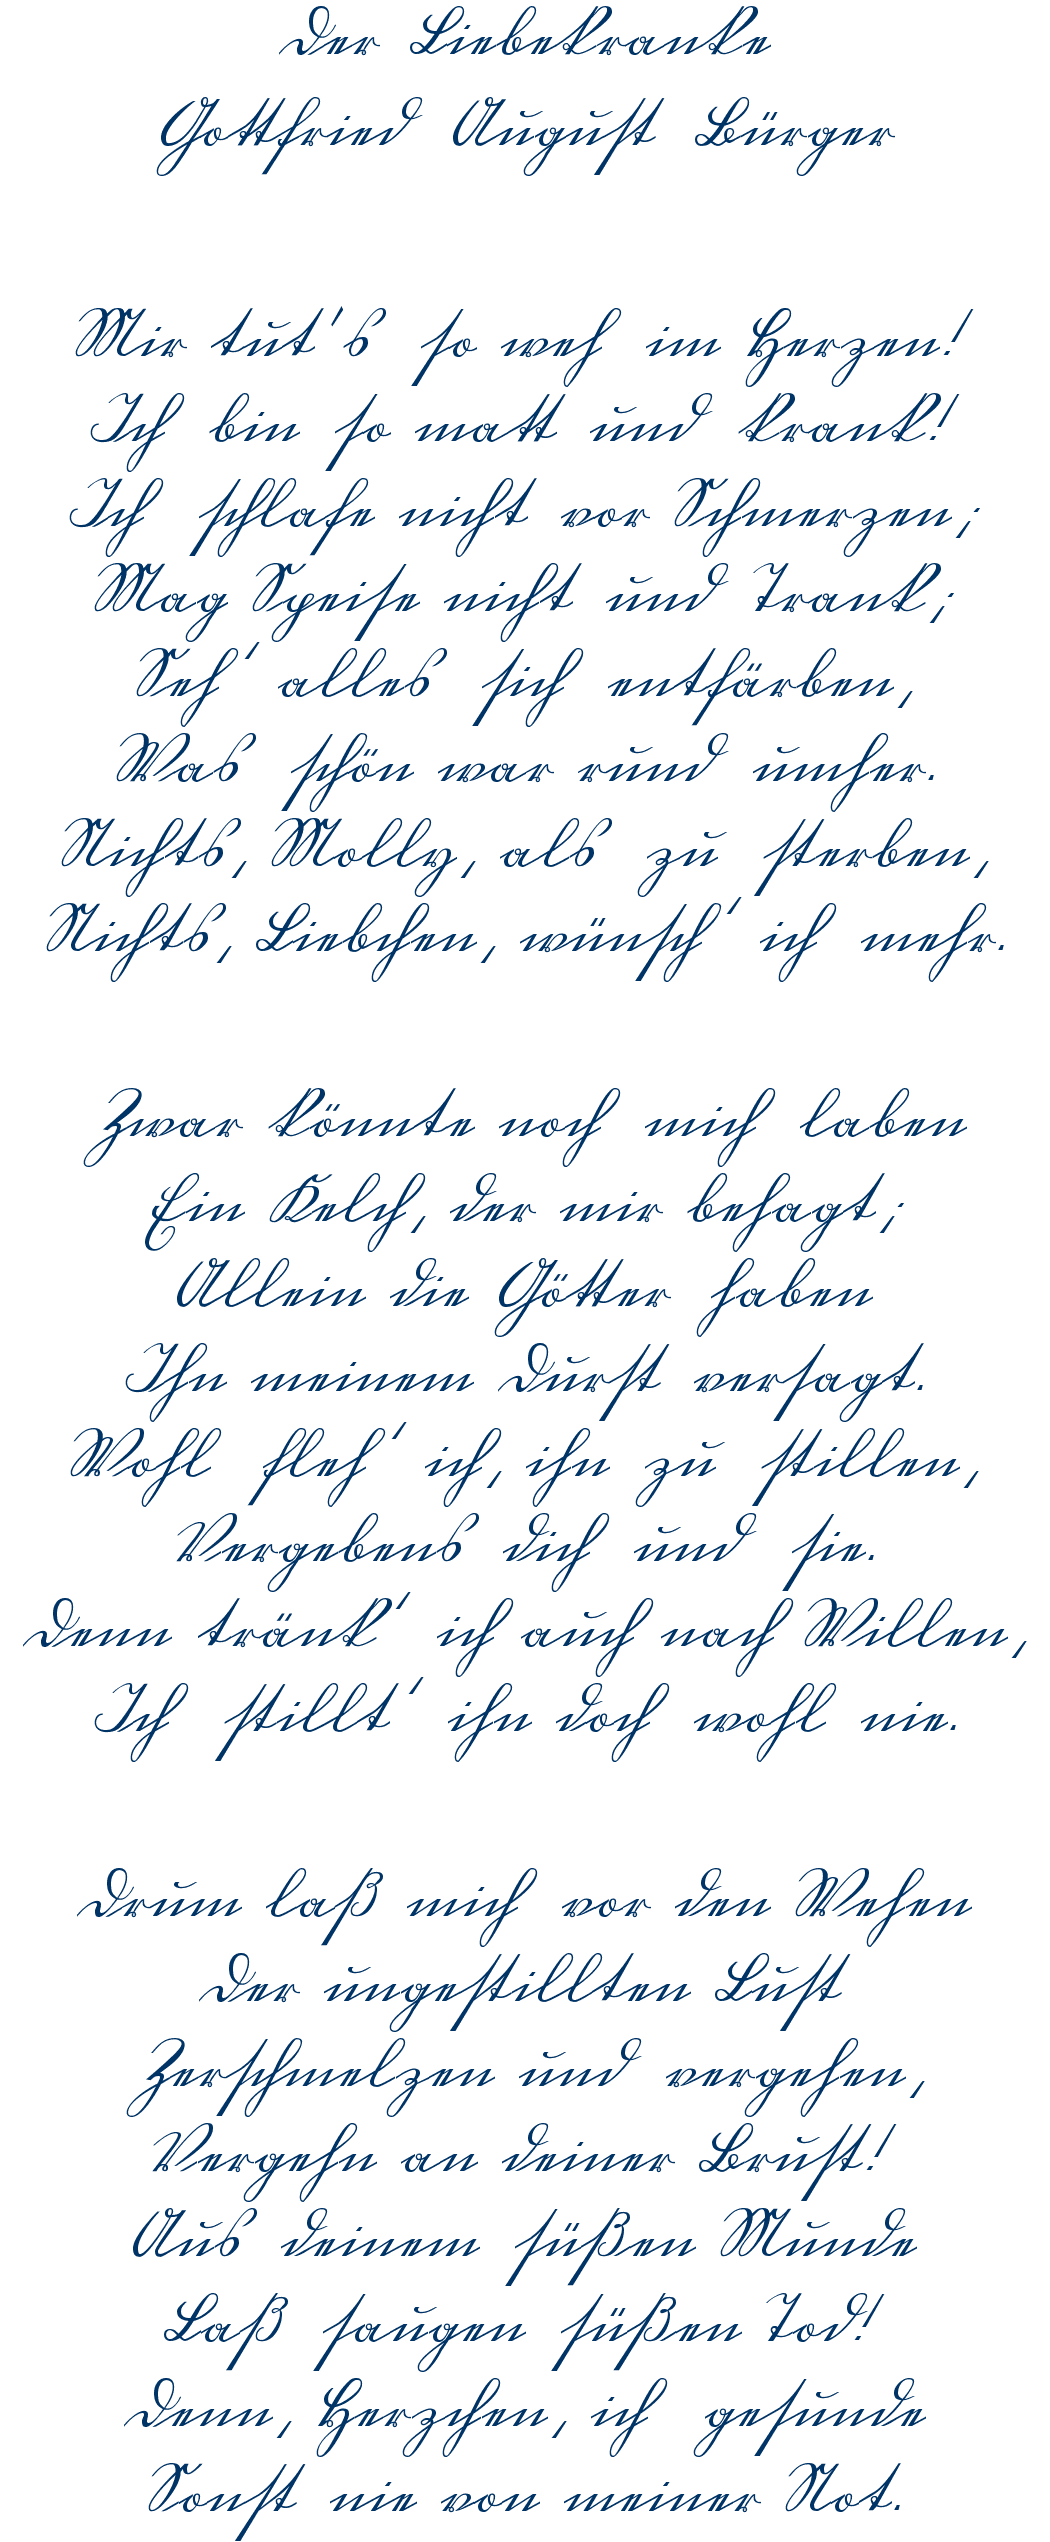 Der Liebekranke
Gottfried August Bürger
Mir tut's so weh im Herzen!
Ich bin so matt und krank!
Ich schlafe nicht vor Schmerzen;
Mag Speise nicht und Trank;
Seh' alles sich entfärben,
Was schön war rund umher.
Nichts, Molly, als zu sterben,
Nichts, Liebchen, wünsch' ich mehr.
Zwar könnte noch mich laben
Ein Kelch, der mir behagt;
Allein die Götter haben
Ihn meinem Durst versagt.
Wohl fleh' ich, ihn zu stillen,
Vergebens dich und sie.
Denn tränk' ich auch nach Willen,
Ich stillt' ihn doch wohl nie.
Drum laß mich vor den Wehen
Der ungestillten Lust
Zerschmelzen und vergehen,
Vergehn an deiner Brust!
Aus deinem süßen Munde
Laß saugen süßen Tod!
Denn, Herzchen, ich gesunde
Sonst nie von meiner Not.